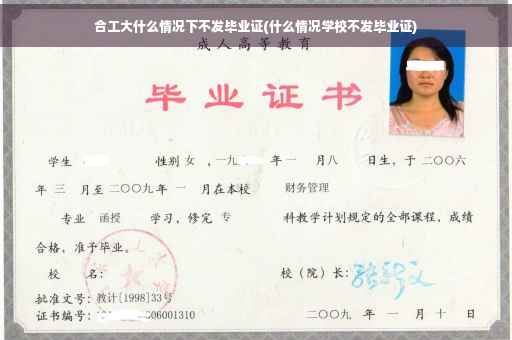 合工大什么情况下不发毕业证(什么情况学校不发毕业证)
成人高等教育
毕业证书
学生 性别 女 ，一九 年 一 月八 日生，于 二〇〇六
年 三 月至 二〇〇九 年 一 月在本校 财务管理
专业 函授 学习，修完 专 科教学计划规定的全部课程，成绩
合格，准予毕业。
校 名： 校（院）长：
批准文号：教计[1998]33号
证书编号： 06001310 二〇〇九 年 一 月 十 日